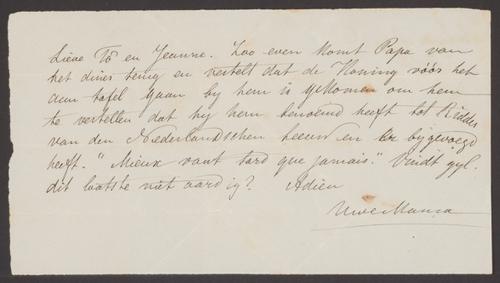 Lieve To en Jeanne. Zoo even komt Papa van
het diner terug en vertelt dat de Koning vóór het
aan tafel gaan bij hem is gekomen om hem
te vertellen dat hij hem benoemd heeft tot Ridder
van den Nederlandschen Leeuw en er bijgevoegd
heeft. "Mieux vaut tard que jamais." Vindt gyl.
dit laatste niet aardig? Adieu
Uwe Mama